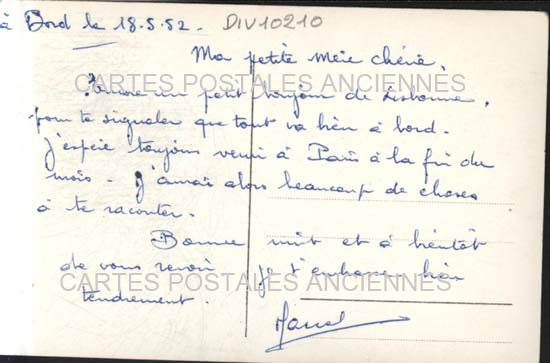 à Bord le 18.5.52. DIV10210
Ma petite Mère chérie,
CARTES POSTALES ANCIENNES
Encore un petit bonjour de Lisbonne,
pour te signaler que tout va bien à bord.
J'espère toujours venir à Paris à la fin du
mois. J'aurai alors beaucoup de choses
à te raconter.
Bonne nuit et à bientôt
de vous revoir je t'embrasse bien
CARTES POSTALES ANCIENNES
tendrement.
Marcel